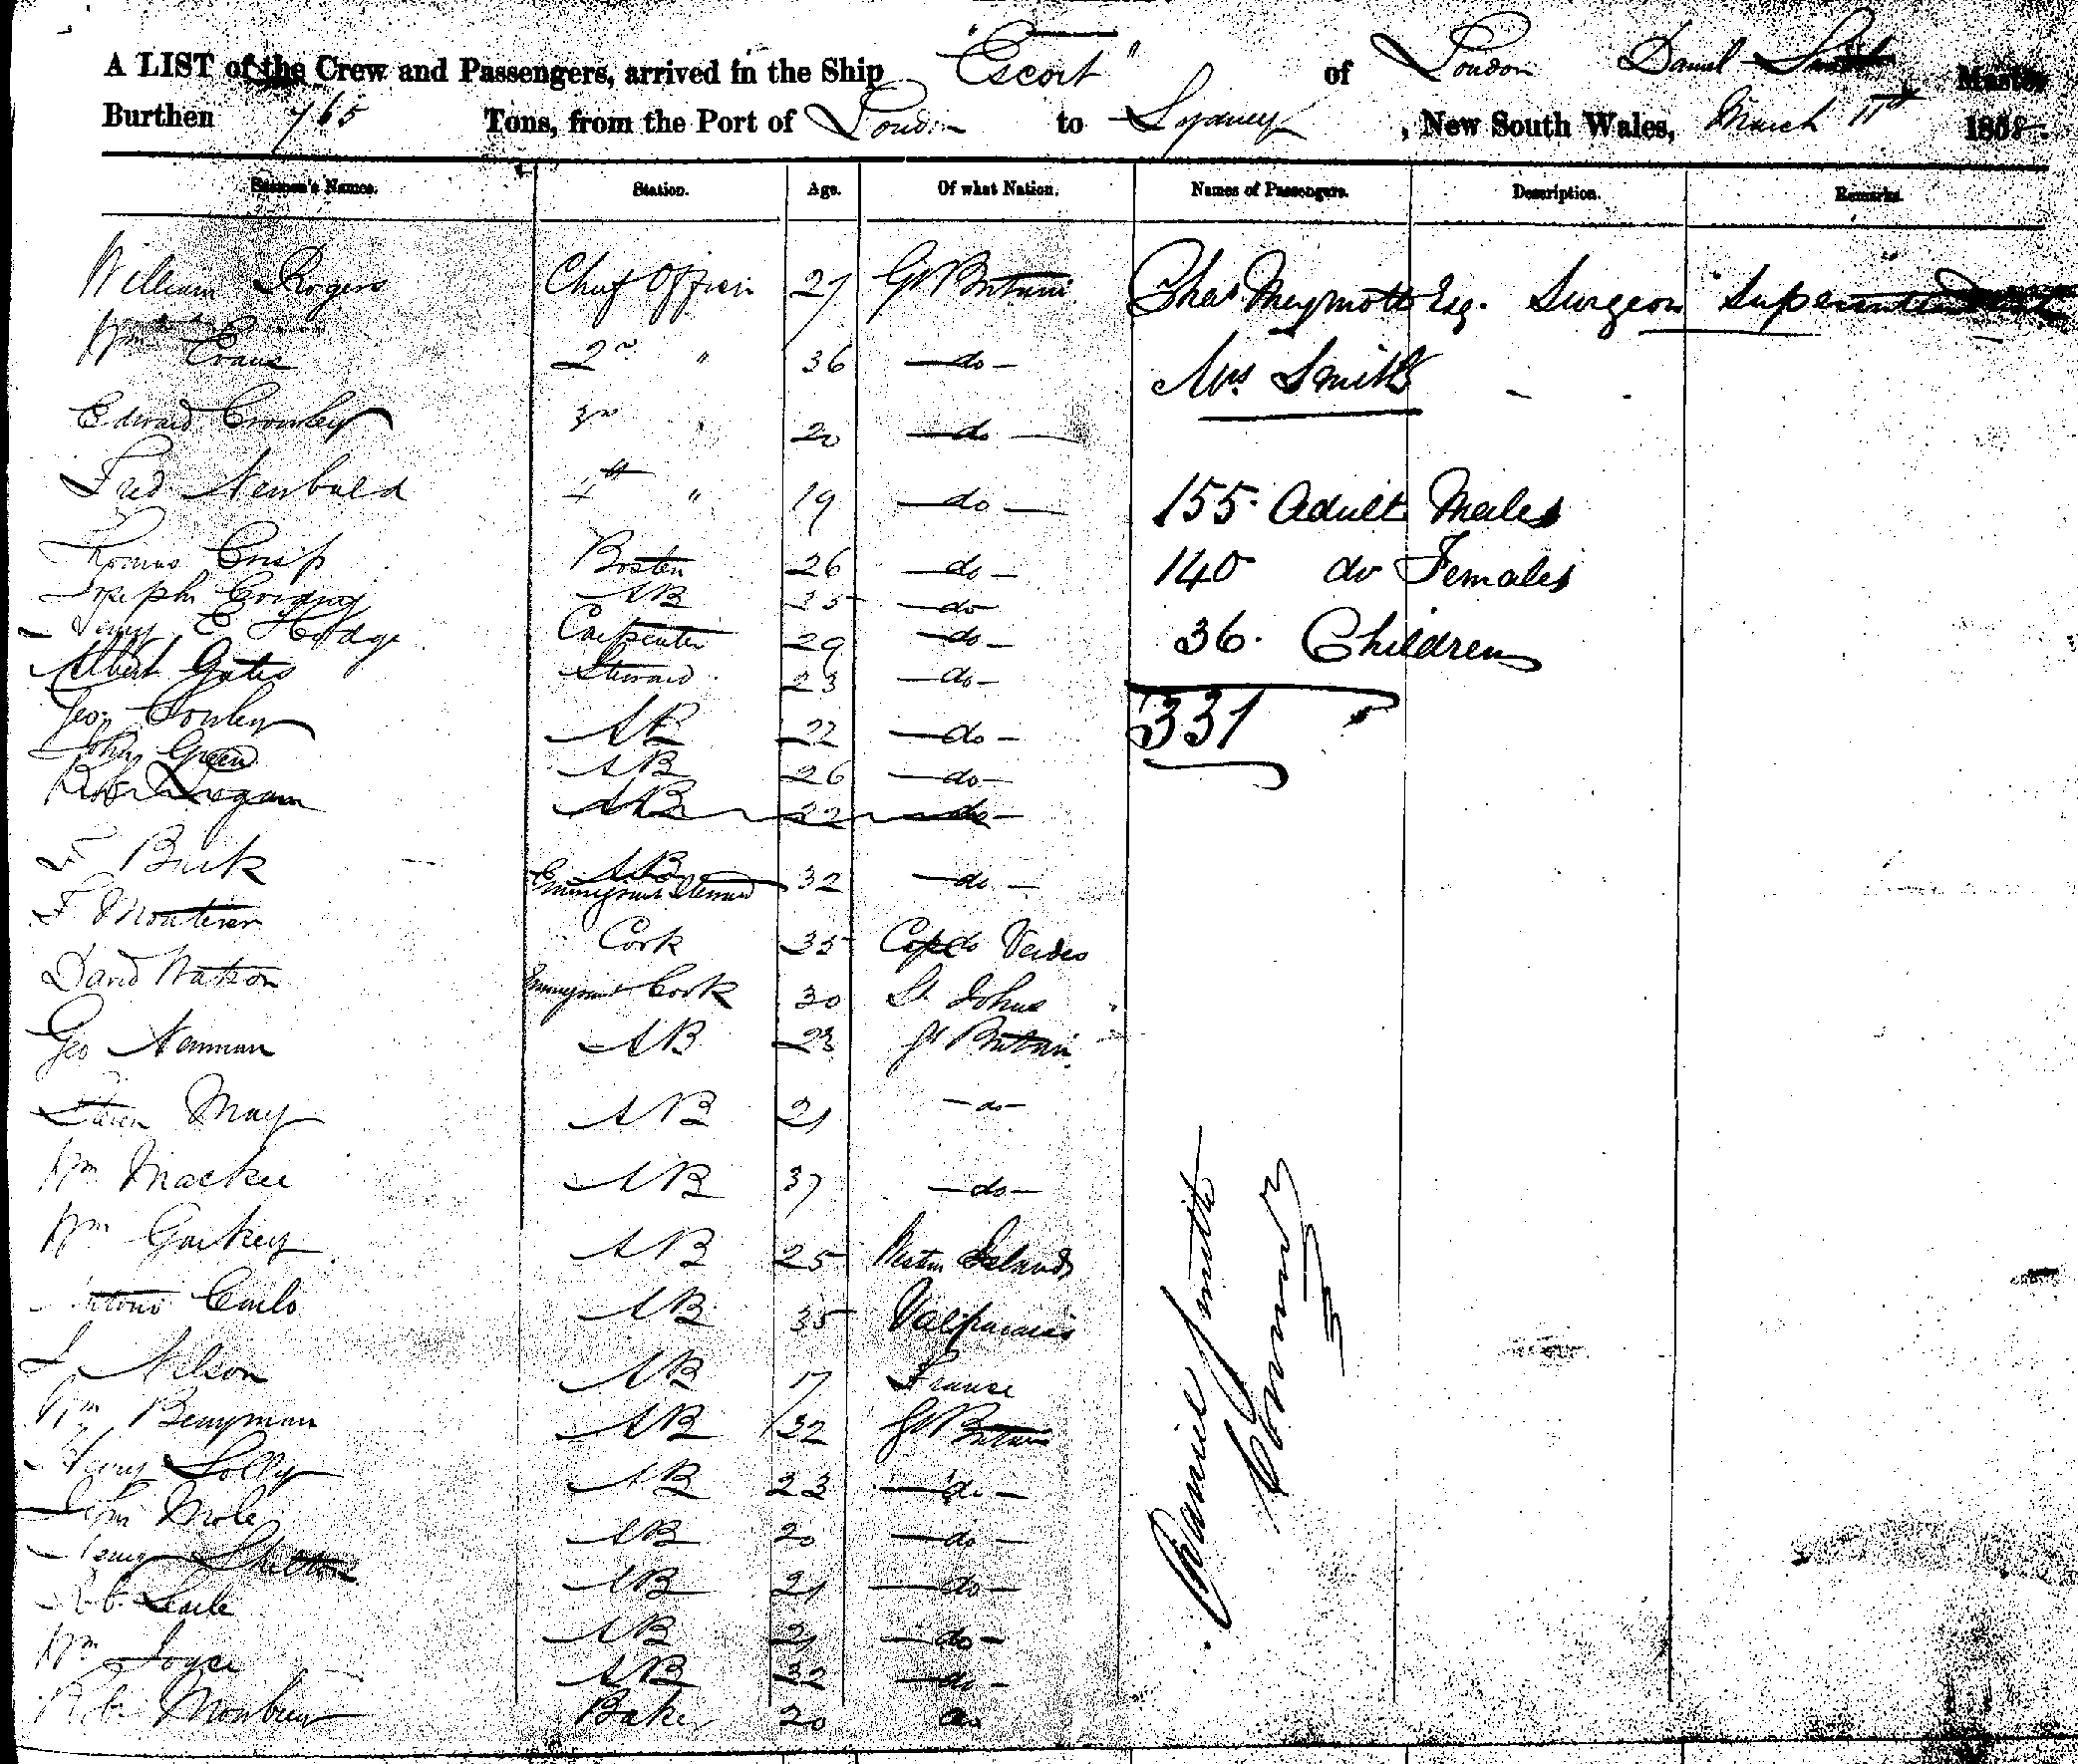 A LIST of the Crew and Passengers, arrived in the Ship "Escort" of London Daniel Smith Master
Burthen 765 Tons, from the Port of London to Sydney, New South Wales, March 11th 1858.
Seamen's Names. Station. Age. Of what Nation. Names of Passengers. Description. Remarks.
William Rogers Chief Officer 27 Gt Britain Chas Meymott Esq. Surgeon Superintendent
Wm Evans 2nd " 36 - do - Mrs Smith
Edward Crowley 3rd " 20 - do -
Fred Newbold 4th " 19 - do - 155. Adult Males
Thomas Crisp Bosten 26 - do - 140 do Females
Joseph AB 25 - do
Henry E Hodge Carpenter 29 - do - 36. Children
Albert Gates Steward 23 - do -
Geo AB 22 - do - 331
John Green AB 26 - do -
Logan AB 22 - do -
F Burk AB Emmigrant Steward 32 - do -
F Cook 35 Cape do Verdes
David Watson Emmigrant Cook 30 St Johns
Geo Newman AB 23 Gt Britain
May AB 21 - do -
Wm Mackie AB 37 - do -
Wm AB 25 Western Islands
AB 35 Valparaiso
Nelson AB 17 France
Wm Berryman AB 32 Gt Britain
Henry Solly AB 23 - do -
John Mole AB 20 - do -
Henry AB 21 - do -
Rob. AB 21 - do -
Wm Joyce AB 32 - do -
Baker 20 do
Daniel Smith